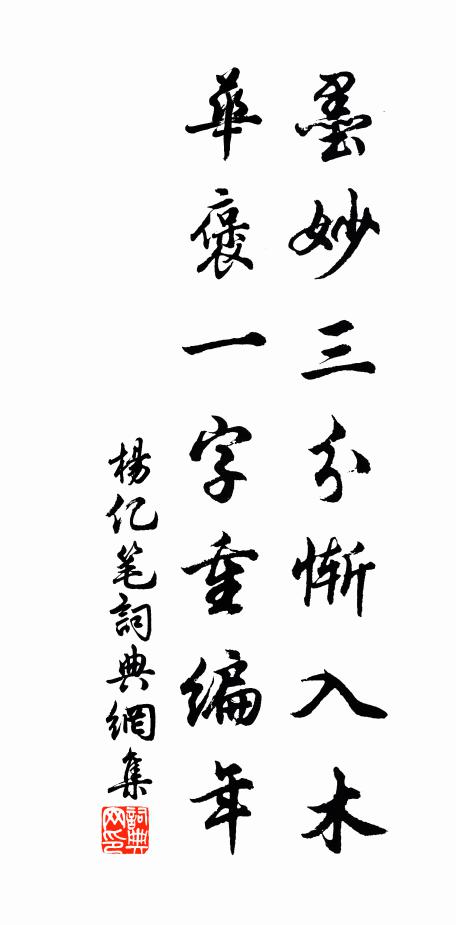 墨妙三分慚入木
華褒一字重編年
楊亿笔詞典網集
詞典网印